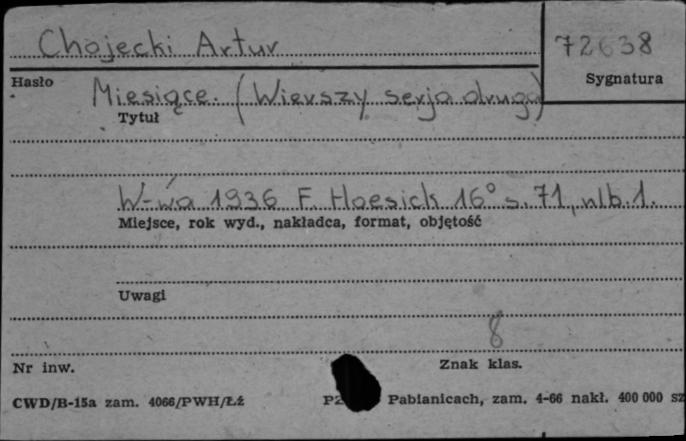 Chojecki Artur
72638
Hasło
Sygnatura
Miesiące. (Wierszy serja druga)
Tytuł
W-wa 1936 F. Hoesick 16° s. 71, nlb. 1.
Miejsce, rok wyd., nakładca, format, objętość
Uwagi
8
Nr inw.
Znak klas.
CWD/B-15a zam. 4066/PWH/Łź
Pabianicach, zam. 4-66 nakł. 400 000 sz